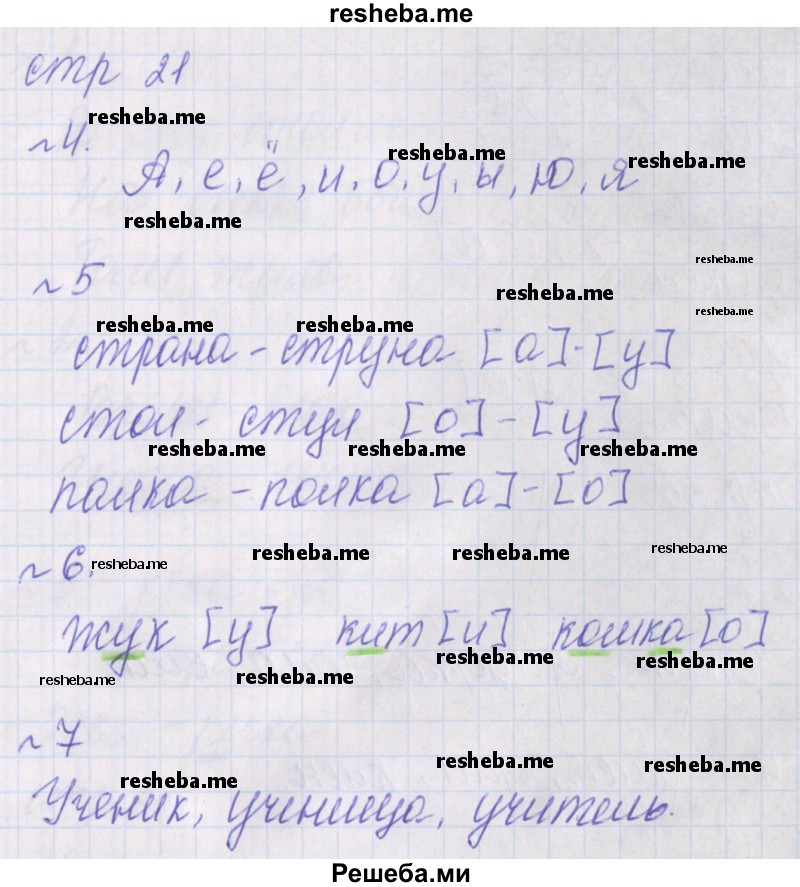 resheba.me
стр 21
resheba.me
~4.
resheba.me resheba.me
А, е, ё, и, о, у, ы, ю, я
resheba.me
resheba.me
~5
resheba.me
resheba.me
resheba.me resheba.me
страна - струна [а]-[у]
стол - стул [о]-[у]
resheba.me resheba.me resheba.me
палка - полка [а]-[о]
resheba.me resheba.me resheba.me
~6. resheba.me
жук [у] кит [и] кошка [о]
resheba.me resheba.me
resheba.me resheba.me
~7
resheba.me resheba.me
resheba.me
Ученик, ученица, учитель.
Решеба.ми